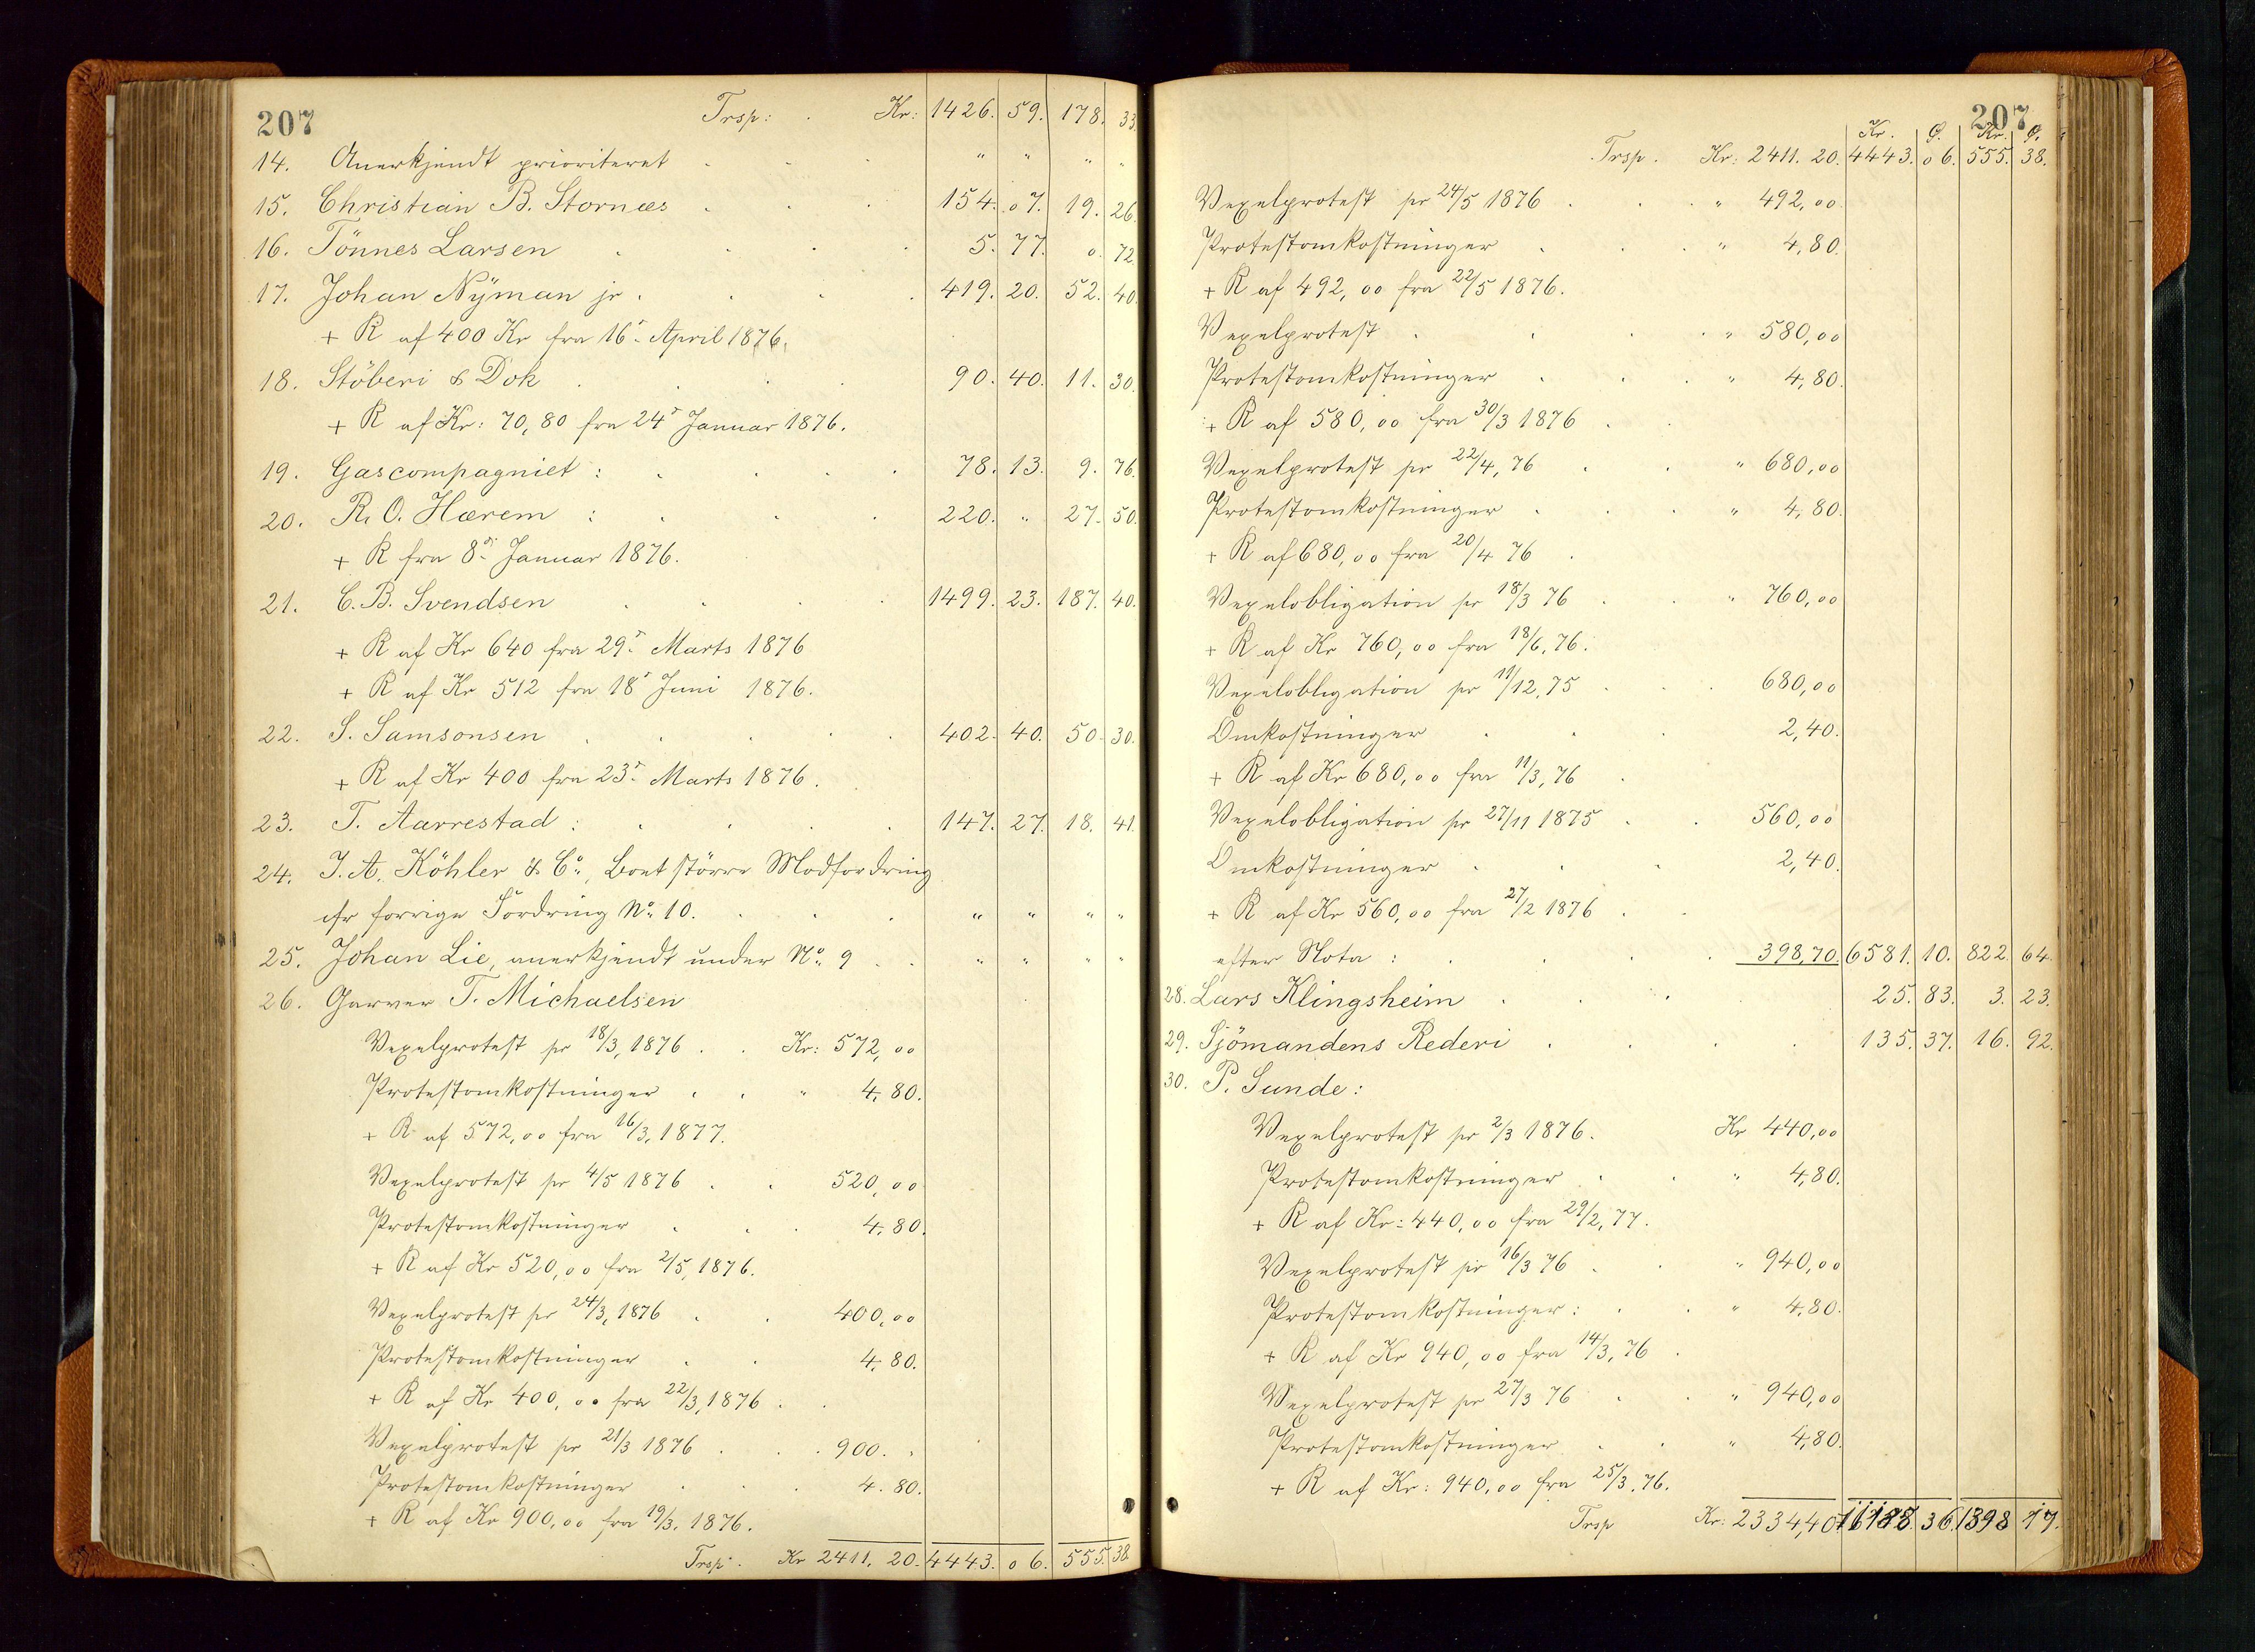 207
Trsp: . Kr: 1426. 59. 178. 33.
14. Anerkjendt prioriteret . . . " " " "
15. Christian B. Stornæs . . . 154. 07. 19. 26.
16. Tönnes Larsen . . . . 5. 77. 0. 72
17. Johan Nÿman jr. . . . 419. 20. 52. 40.
+ R af 400 Kr fra 16' April 1876.
18. Stöberi & Dok . . . . 90. 40. 11. 30.
+ R af Kr: 70,80 fra 24' Januar 1876.
19. Gascompagniet : . . . . 78. 13. 9. 76.
20. R. O. Hærem : . . . 220. " 27. 50.
+ R fra 8' Januar 1876.
21. C. B. Svendsen . . . . 1499. 23. 187. 40.
+ R af Kr 640 fra 29' Marts 1876
+ R af Kr 512 fra 18' Juni 1876.
22. S. Samsonsen . . . . . 402. 40. 50. 30.
+ R af Kr 400 fra 23' Marts 1876.
23. T. Aarrestad : . . . . 147. 27. 18. 41.
24. J. A. Köhler & Co:, Boet större Modfordring
cfr forrige Fordring No: 10. . . . " " " "
25. Johan Lie, anerkjendt under No: 9 . . " " " "
26. Garver T. Michaelsen
Vexelprotest pr 18/3, 1876 . . Kr: 572,00
Protestomkostninger . . " 4,80.
+ R af 572,00 fra 16/3, 1877.
Vexelprotest pr 4/5 1876 . . 520,00
Protestomkostninger . . . 4,80.
+ R af Kr 520,00 fra 2/5, 1876.
Vexelprotest pr 24/3, 1876 . . 400,00
Protestomkostninger . . 4,80.
+ R af Kr 400,00 fra 22/3, 1876 . .
Vexelprotest pr 21/3 1876 . . . 900. "
Protestomkostninger . . . 4.80.
+ R af Kr 900,00 fra 19/3. 1876.
Trsp. Kr 2411. 20. 4443. 06. 555. 38
207
Kr. Ø. Kr. Ø.
Trsp. Kr: 2411. 20. 4443. 06. 555. 38.
Vexelprotest pr 24/5 1876 . . . " 492,00.
Protestomkostninger . . . " 4,80.
+ R af 492,00 fra 22/5 1876.
Vexelprotest . . . . " 580,00
Protestomkostninger . . . " 4,80.
+ R af 580,00 fra 30/3 1876 . .
Vexelprotest pr 22/4, 76 . . " 680,00
Protestomkostninger . . . " 4,80.
+ R af 680,00 fra 20/4 76 .
Vexelobligation pr 18/3 76 . . " 760,00
+ R af Kr 760,00 fra 18/6. 76.
Vexelobligation pr 11/12, 75 . . 680,00
Omkostninger . . . 2,40.
+ R af Kr 680,00 fra 11/3, 76 .
Vexelobligation pr 27/11 1875 . . 560,00
Omkostninger . . . 2,40.
+ R af Kr 560,00 fra 27/2 1876 . .
efter Nota : . . . . 398,70. 6581. 10. 822. 64.
28. Lars Klingsheim . . . 25. 83. 3. 23.
29. Sjömandens Rederi . . . . 135. 37. 16. 92.
30. P. Sunde:
Vexelprotest pr 2/3 1876. Kr 440,00
Protestomkostninger . . " 4,80.
+ R af Kr: 440,00 fra 29/2, 77.
Vexelprotest pr 16/3 76 . . " 940,00
Protestomkostninger: . . " 4,80.
+ R af Kr 940,00 fra 14/3, 76 .
Vexelprotest pr 27/3 76 . . " 940,00
Protestomkostninger . . " 4,80.
+ R af Kr: 940,00 fra 25/3. 76.
Trsp Kr: 2334,40 36. 1398 17.